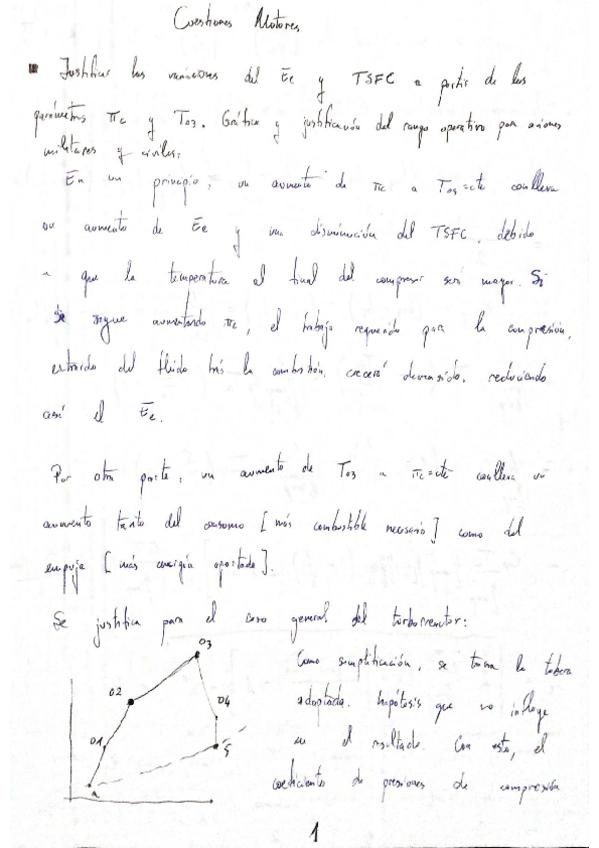 Cuestiones Motores
Justificar las variaciones del Ee y TSFC a partir de los
parámetros πc y T03. Gráfica y justificación del rango operativo para aviones
militares y civiles:
En un principio, un aumento de πc a T03=cte conlleva
un aumento de Ee y una disminución del TSFC, debido
a que la temperatura al final del compresor será mayor. Si
se sigue aumentando πc, el trabajo requerido para la compresión,
extraído del fluido trás la combustión, crecerá demasiado, reduciendo
así el Ee.
Por otra parte, un aumento de T03 a πc=cte conlleva un
aumento tanto del consumo [más combustible necesario] como del
empuje [más energía aportada].
Se justifica para el caso general del turborreactor:
03
02
04
01
5
A
Como simplificación, se toma la tobera
adaptada. Hipótesis que no influye
en el resultado. Con esto, el
coeficiente de presiones de compresión
1